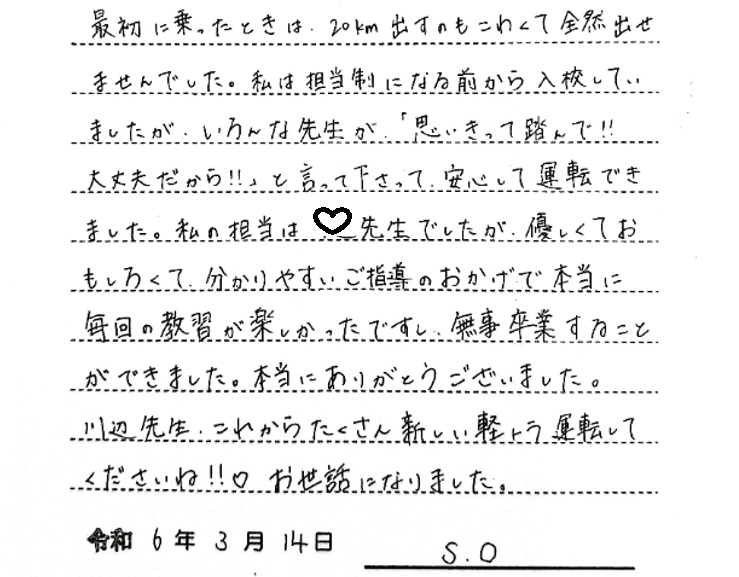 最初に乗ったときは、20km出すのもこわくて全然出せ
ませんでした。私は担当制になる前から入校してい
ましたが、いろんな先生が、「思いきって踏んで!!
大丈夫だから!!」と言って下さって、安心して運転でき
ました。私の担当は♡先生でしたが、優しくてお
もしろくて、分かりやすいご指導のおかげで本当に
毎回の教習が楽しかったですし、無事卒業すること
ができました。本当にありがとうございました。
川辺先生、これからたくさん新しい軽トラ運転して
くださいね!!♡ お世話になりました。
令和 6年 3月 14日 S.O